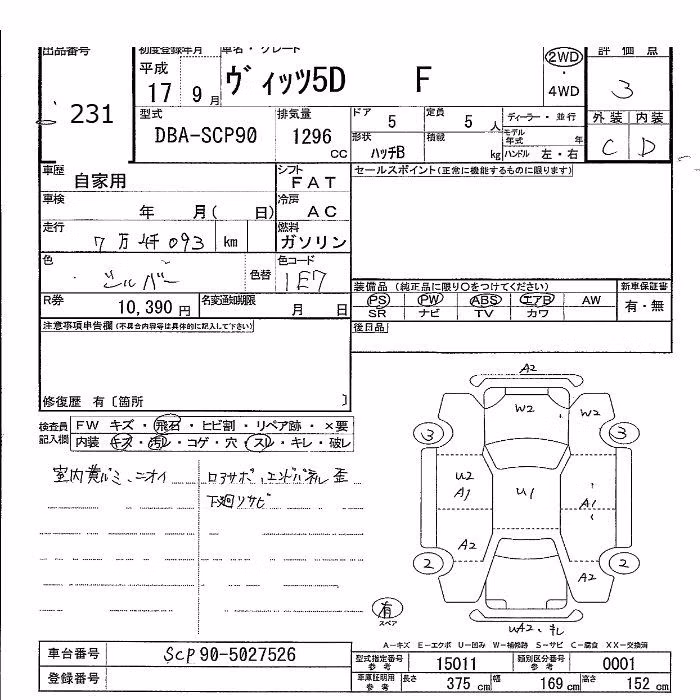 出品番号 初度登録年月 車名・グレード 評価点
231 平成 17 9月 ヴィッツ5D F 2WD・4WD 3
型式 排気量 ドア 5 定員 5人 ディーラー・並行 外装 内装
DBA-SCP90 1296cc 形状 ハッチB 積載 kg モデル年式 年 ハンドル 左・右 C D
車歴 自家用 シフト FAT セールスポイント(正常に機能するものに限ります)
車検 年 月( 日) 冷房 AC
走行 7万 4千 093 km 燃料 ガソリン
色 シルバー 色替 色コード 1E7
装備品 (純正品に限り○をつけてください) 新車保証書
R券 10,390円 名変通知期限 月 日 PS PW ABS エアB AW 有・無
SR ナビ TV カワ
注意事項申告欄(不具合内容等は具体的に記入して下さい) 後日品
修復歴 有〔箇所 〕
検査員記入欄 FW キズ・飛石・ヒビ割・リペア跡・×要
内装 キズ・汚レ・コゲ・穴・スレ・キレ・破レ
室内 ニオイ ロアサポ、エンドパネル 歪
下廻リサビ
A2
W2 W2
3 3
U2 A1 U1 A1
A2 A2
2 2
WA2、キレ
有 スペア
A-キズ E-エクボ U-凹み W-補修跡 S-サビ C-腐食 XX-交換済
車台番号 SCP90-5027526 型式指定番号 参考 15011 類別区分番号 参考 0001
登録番号 車庫証明用 参考 長さ 375cm 幅 169cm 高さ 152cm